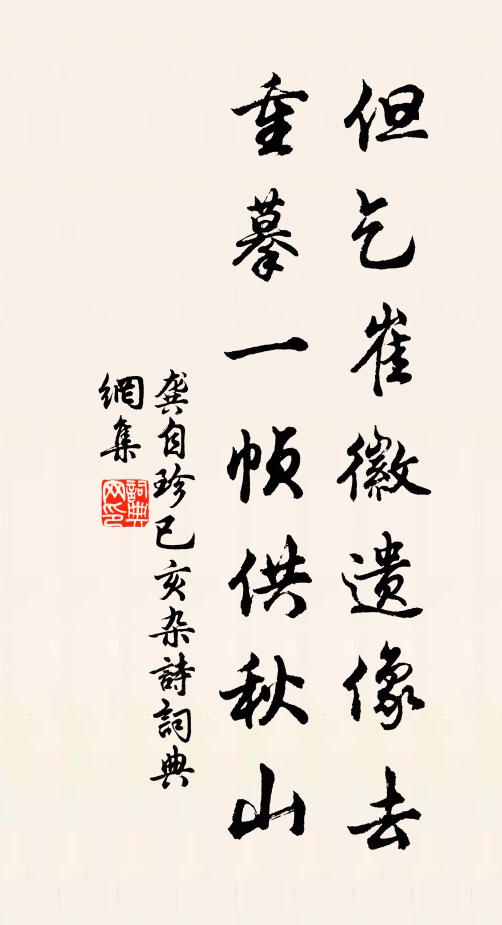 但乞崔徽遗像去
重摹一帧供秋山
龚自珍己亥杂詩詞典
網集
詞典网印